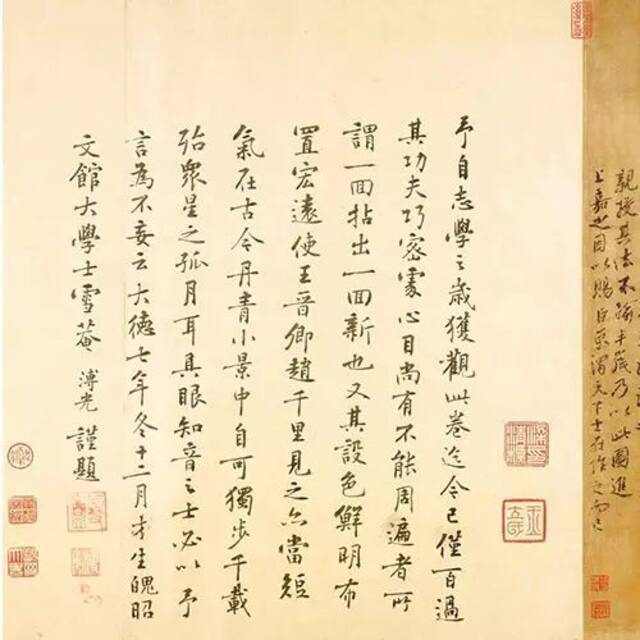 親授其法不踰半歲乃以此圖進
上嘉之因以賜臣京謂天下士在作之而已
予自志學之歲獲觀此卷迄今已僅百過
其功夫巧密處心目尚有不能周遍者所
謂一面拈出一面新也又其設色鮮明布
置宏遠使王晉卿趙千里見之亦當短
氣在古今丹青小景中自可獨步千載
殆眾星之孤月耳具眼知音之士必以予
言為不妄云大德七年冬十二月才生魄昭
文館大學士雪菴溥光謹題